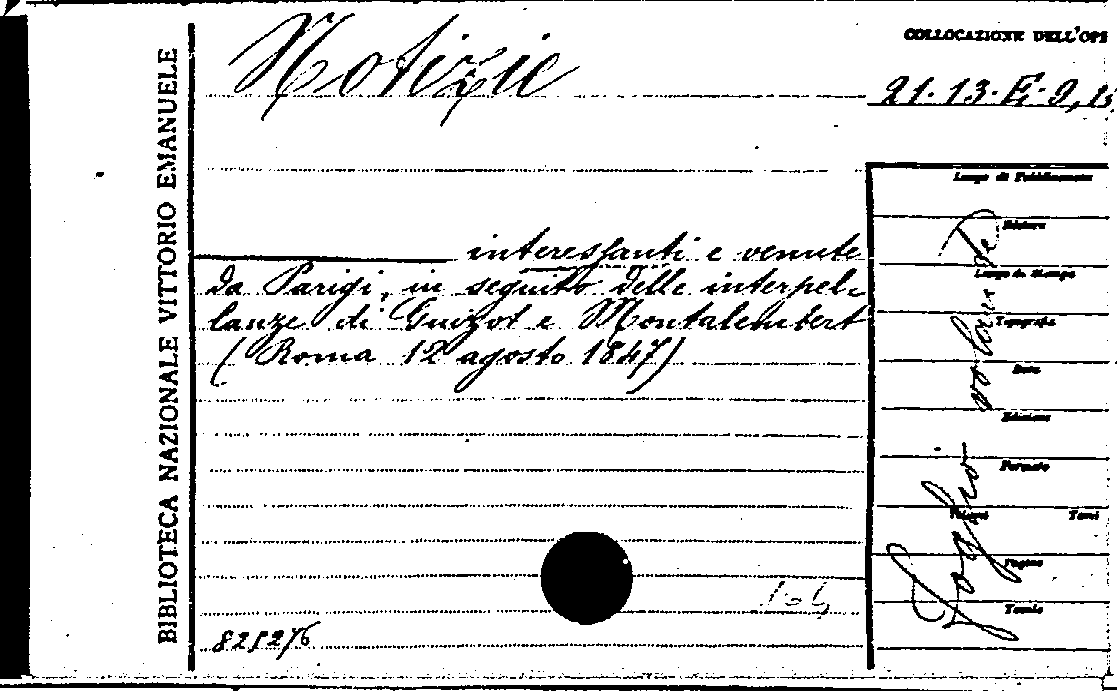 BIBLIOTECA NAZIONALE VITTORIO EMANUELE
Notizie
COLLOCAZIONE DELL'OPE
21.13.E.2,
interessanti e venute
da Parigi, in seguito delle interpel-
lanze di Guizot e Montalembert
(Roma 12 agosto 1847)
Luogo di Pubblicazione
Editore
Luogo di Stampa
Tipografia
Data
Edizione
Formato
Volumi Tomi
Pagine
Tavole
Foglio volante
104
821276